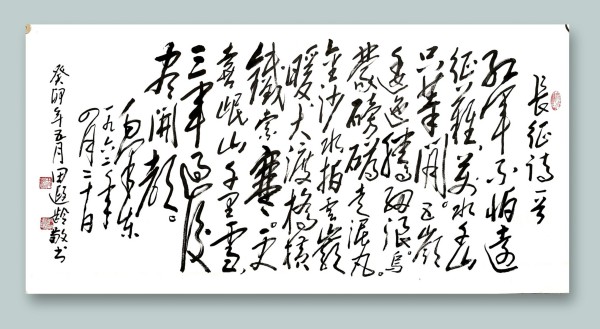 長征詩一首
红軍不怕遠
征難萬水千山
只等閑。五嶺
逶迤腾细浪烏
蒙磅礴走泥丸。
金沙水拍雲崖
暖大渡橋横
鐵索寒。更
喜岷山千里雪
三軍過後
盡開颜。
毛澤東
一九六二年
四月二十日
癸卯年五月田遐齡敬书